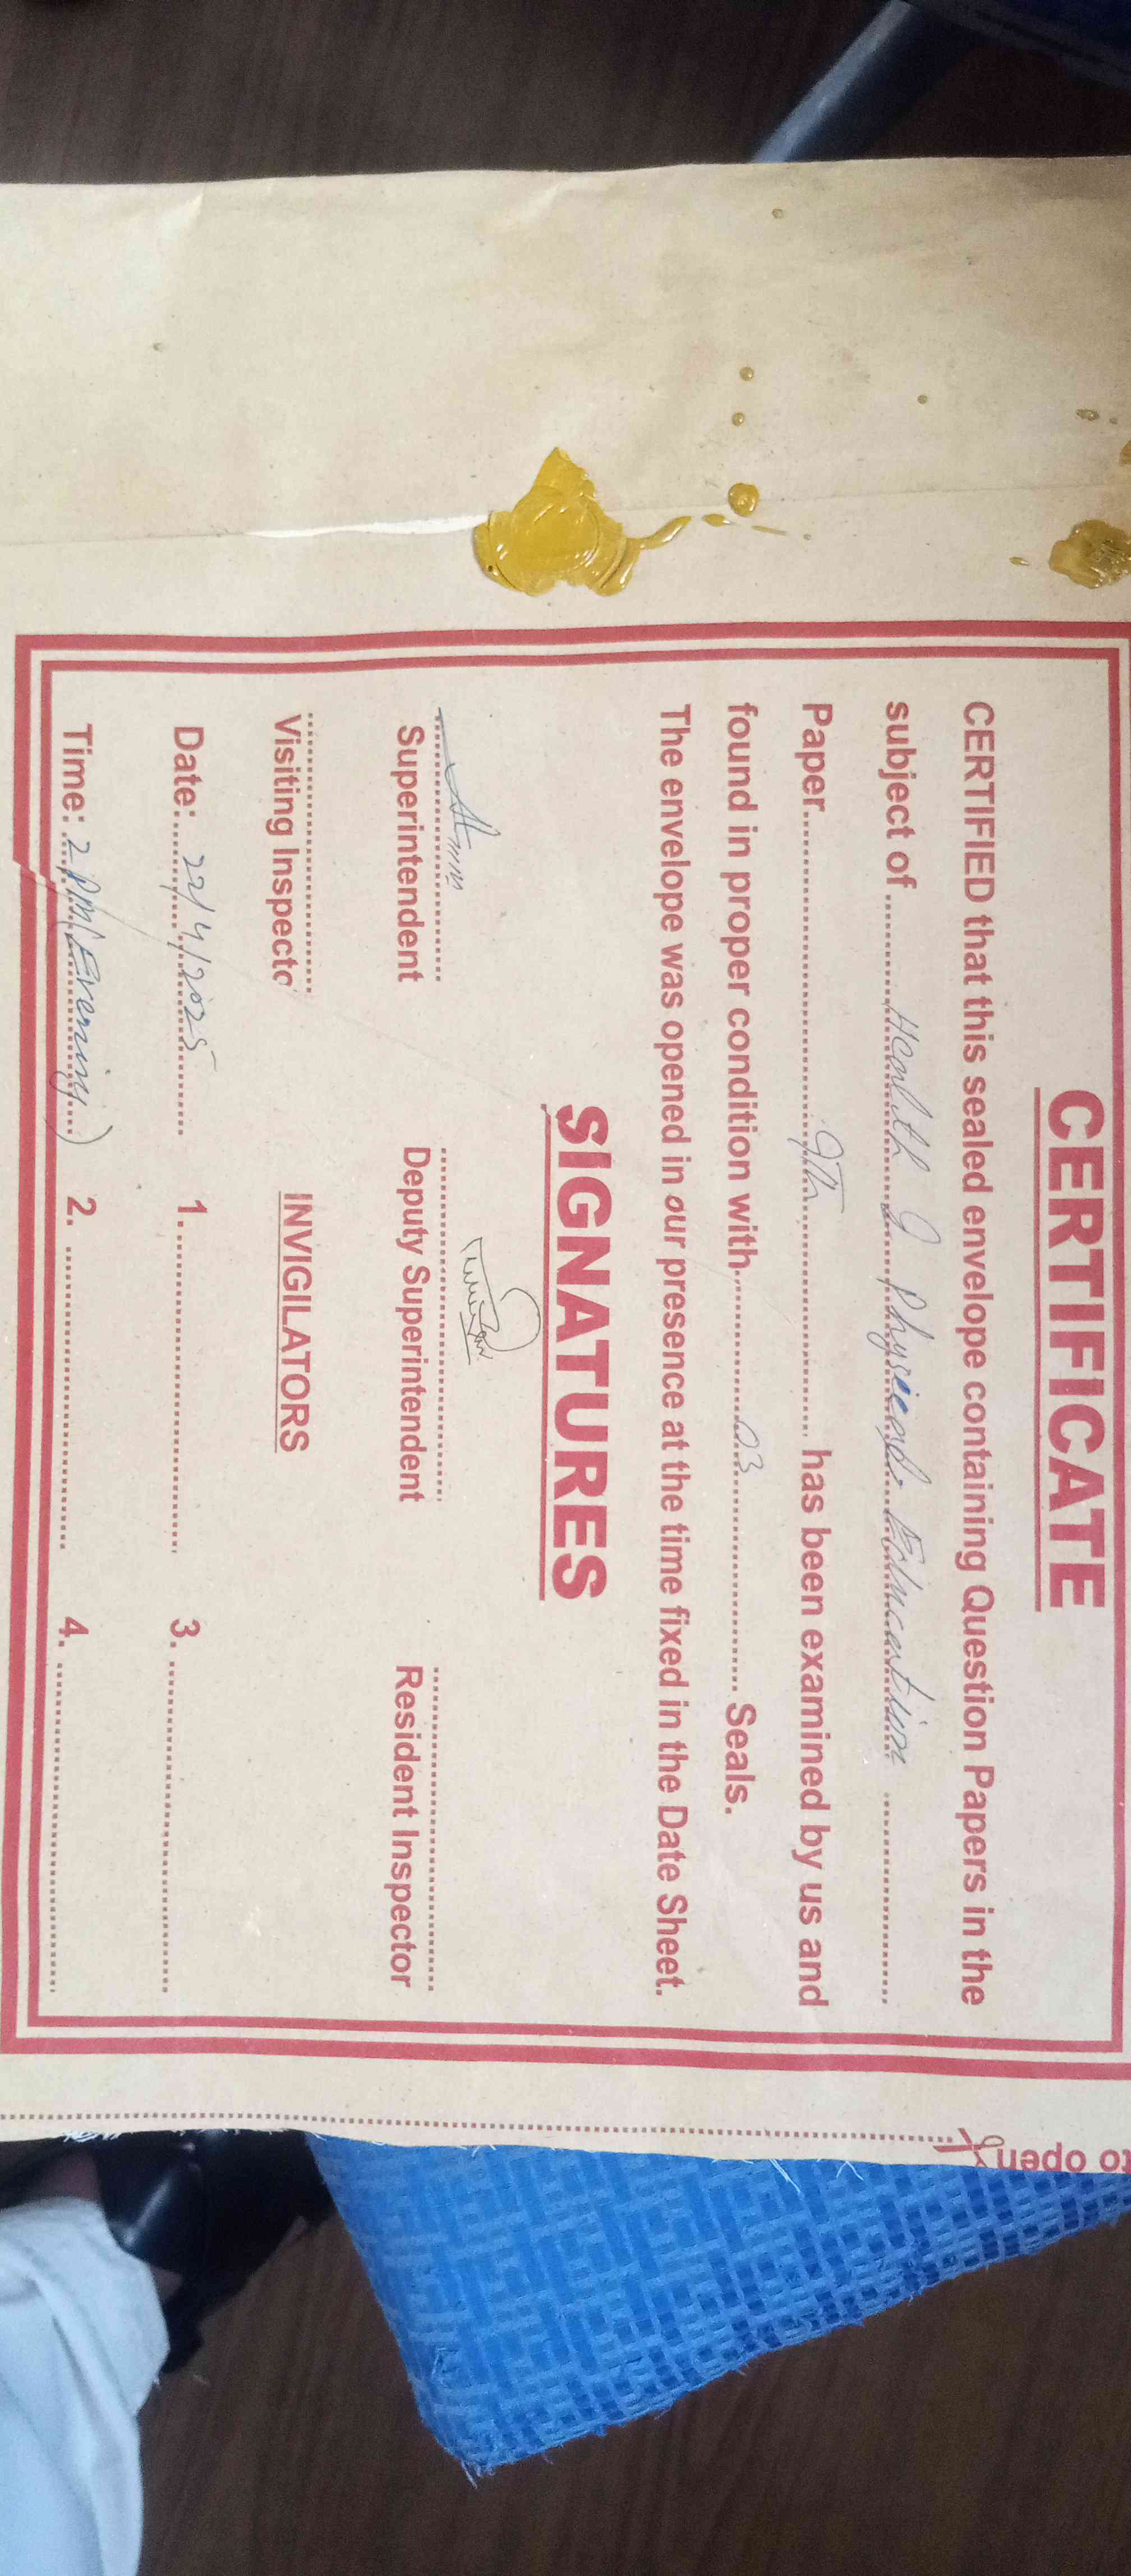 CERTIFICATE
CERTIFIED that this sealed envelope containing Question Papers in the
subject of ........ Health & Physical Education ........
Paper........ 9th ........ has been examined by us and
found in proper condition with........ 03 ........ Seals.
The envelope was opened in our presence at the time fixed in the Date Sheet.
SIGNATURES
Superintendent Deputy Superintendent Resident Inspector
Visiting Inspecto INVIGILATORS
Date: 22/4/2025 1. ........ 3. ........
Time: 2 PM (Evening) 2. ........ 4. ........
to open